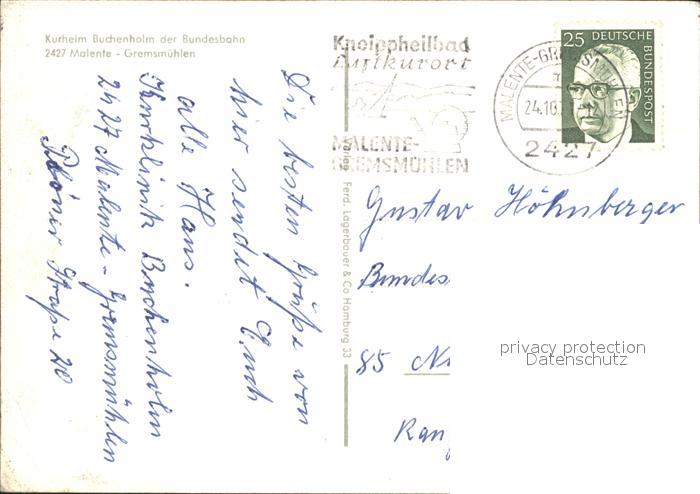 Kurheim Buchenholm der Bundesbahn
2427 Malente - Gremsmühlen
Kneippheilbad
Luftkurort
MALENTE-
GREMSMÜHLEN
MALENTE-GREMSMÜHLEN
24.10.
2427
25 DEUTSCHE
BUNDESPOST
Die besten Grüße von
hier sendet Euch
alle Hans.
Kurklinik Buchenholm
2427 Malente - Gremsmühlen
Plöner Straße 20
Verlag Ferd. Lagerbauer & Co Hamburg 33
Gustav Höhnberger
Bundes
85 Nü
Ran
privacy protection
Datenschutz